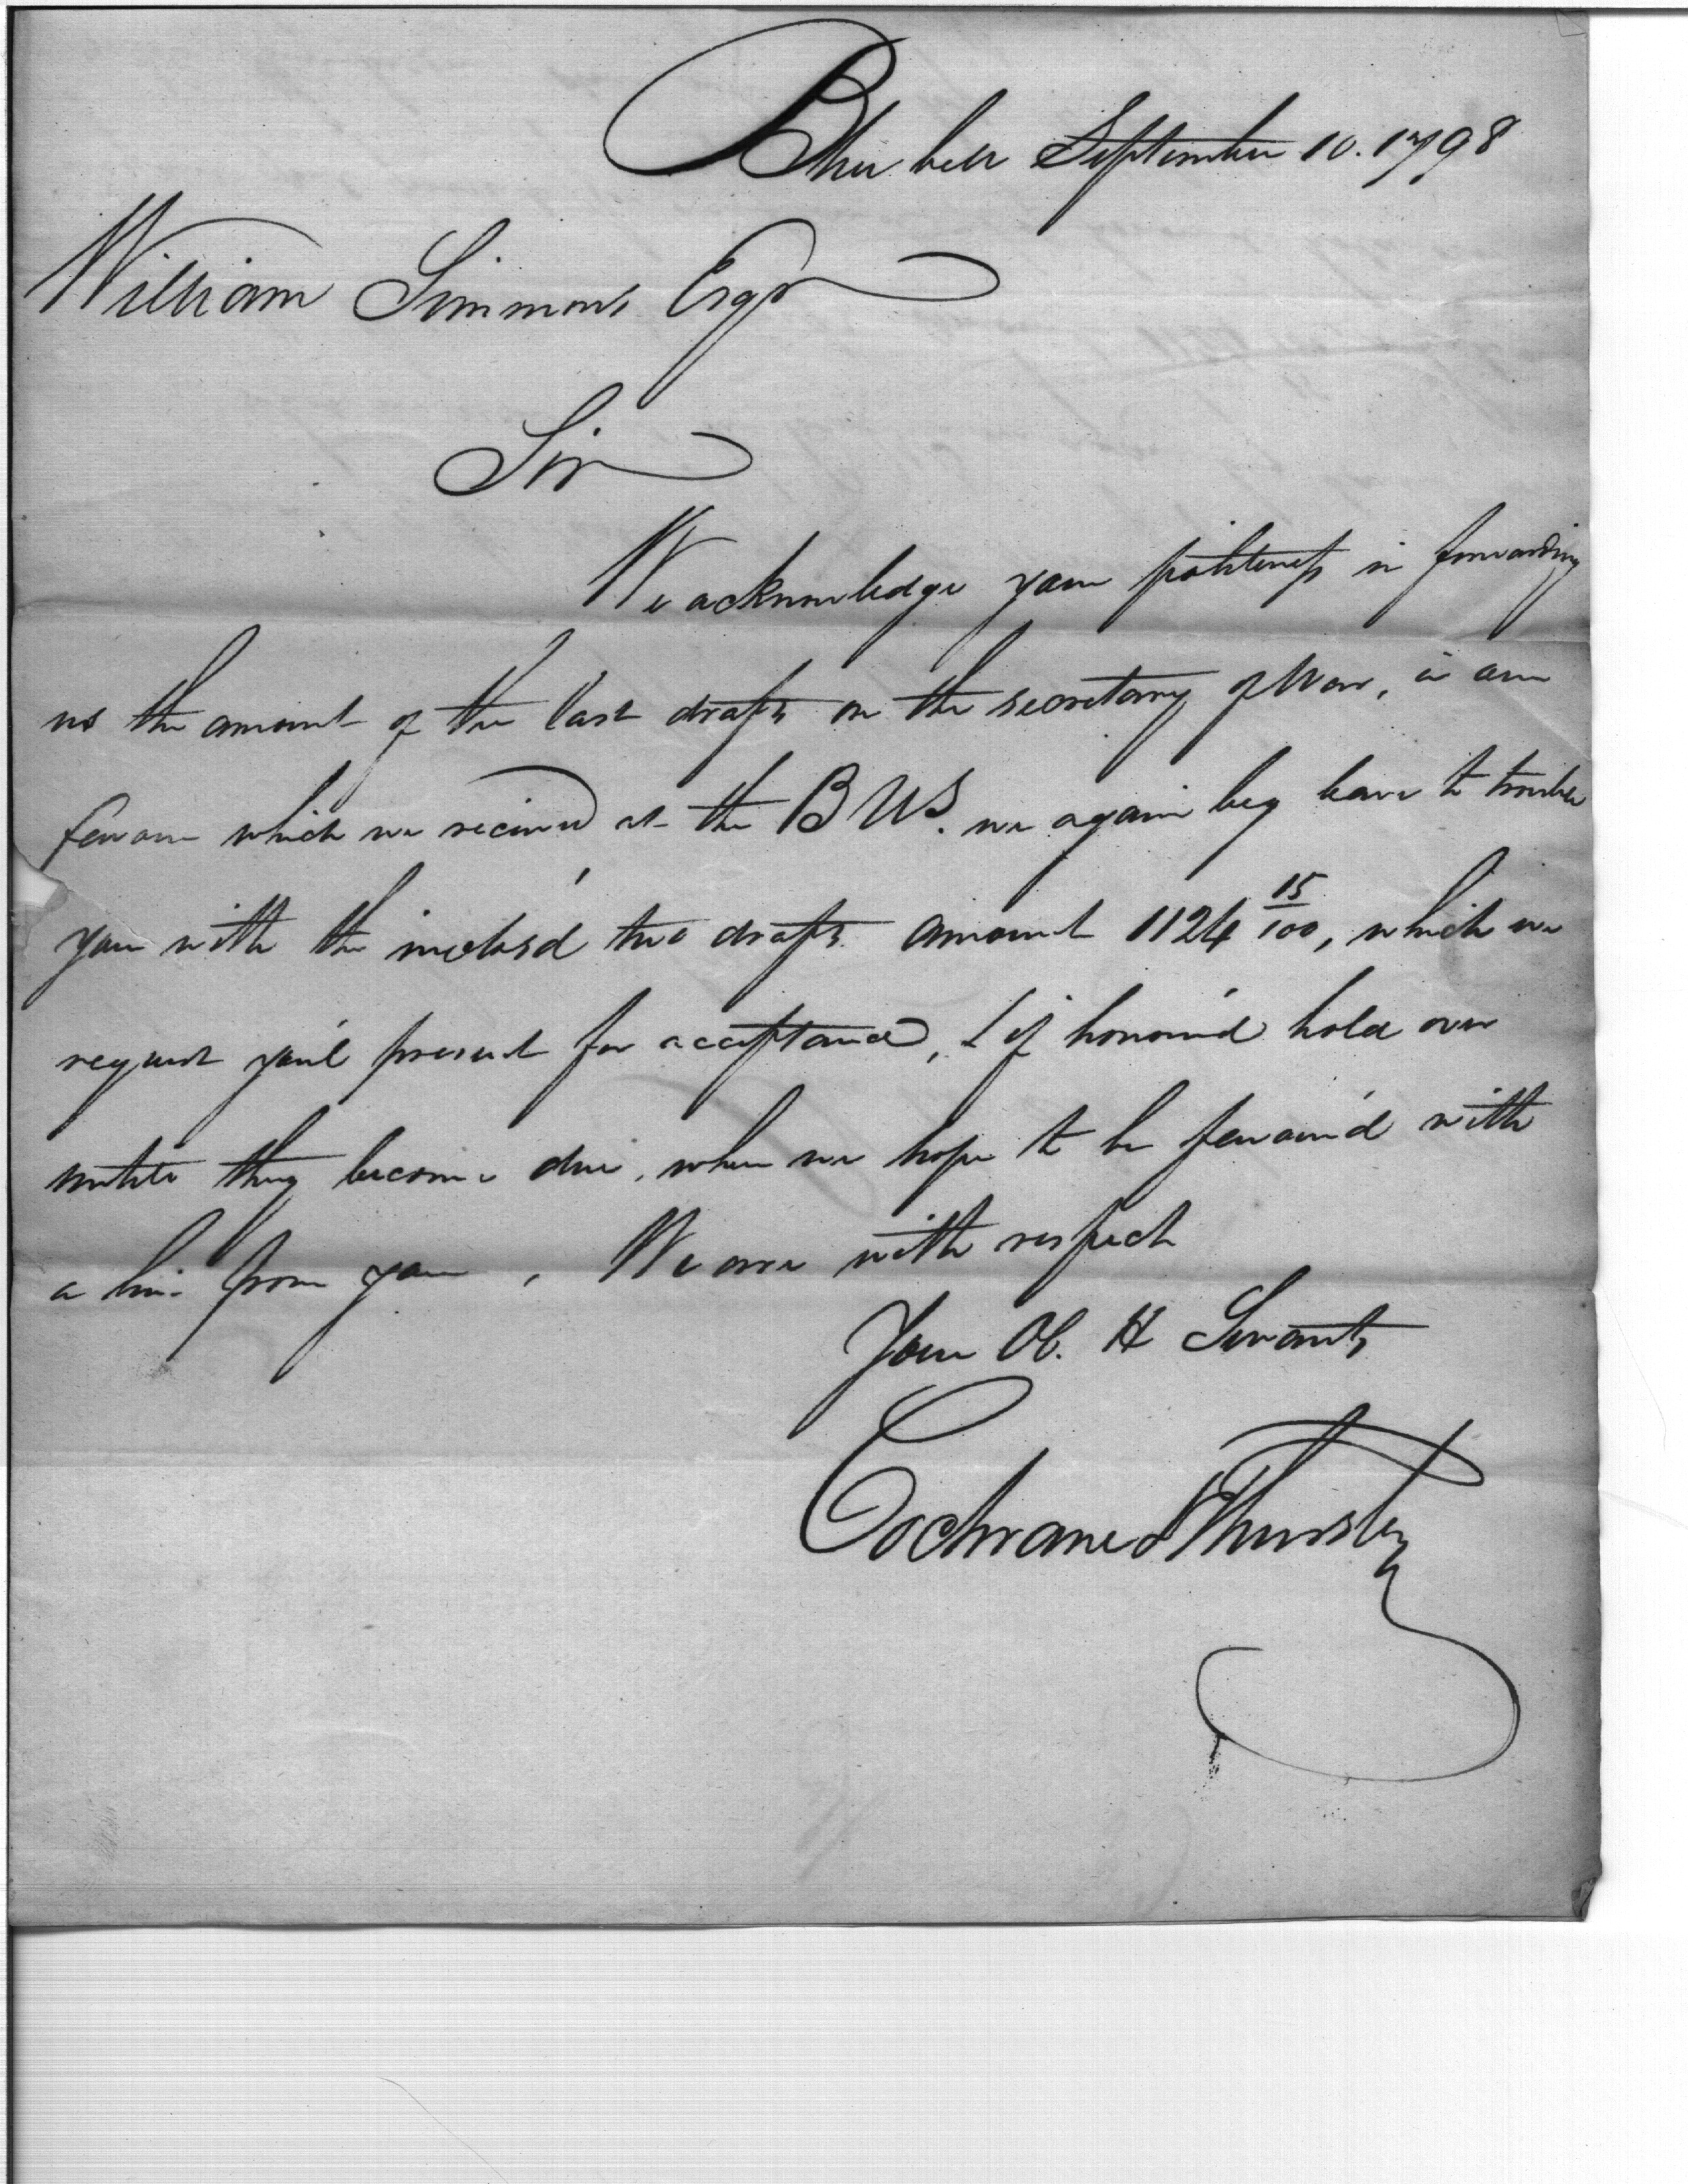 September 10. 1798
William Simmons Esqr
Sir
We acknowledge your politeness in forwarding
us the amount of the last drafts on the secretary of War, in our
favour which we received at the B US. we again beg leave to trouble
you with the inclos'd two drafts amount 1124 15/100, which we
request you'l present for acceptance, & if honour'd hold over
untill they become due, when we hope to be favour'd with
a line from you, We are with respect
Your Ob. H Servants
Cochrane & Thursby